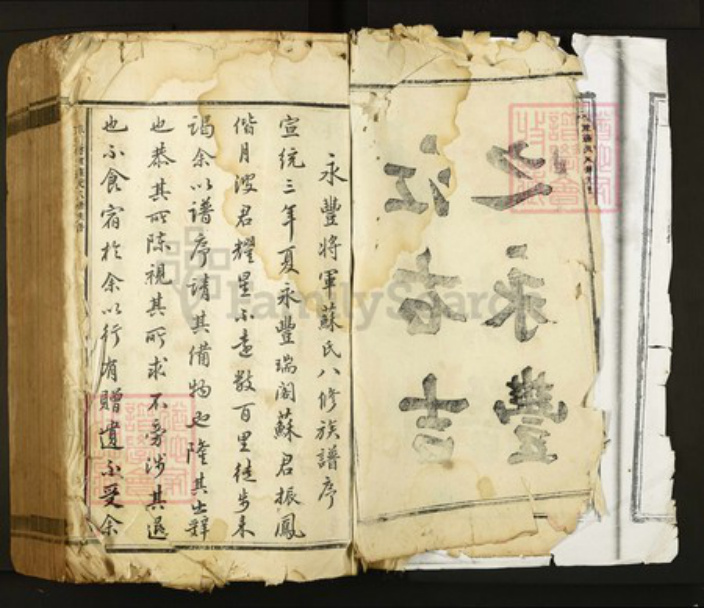 之永豐
江右吉
永豐將軍蘇氏八修族譜序
宣統三年夏永豐瑞閣蘇君振鳳
偕月波君耀星不遠數百里徒步來
謁余以譜序請其備物也隆其出辭
也恭其所陳視其所求不旁涉其退
也不食宿於余以行有贈遺不受余
FamilySearch